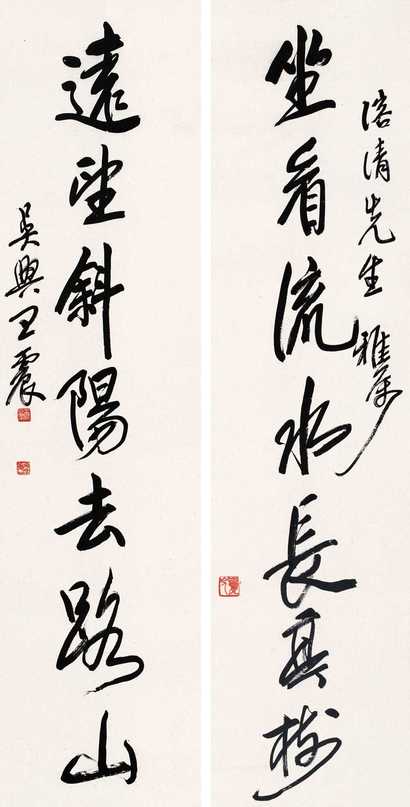 溶清先生雅属
坐看流水長亭樹
遠望斜陽去路山
吳興王震